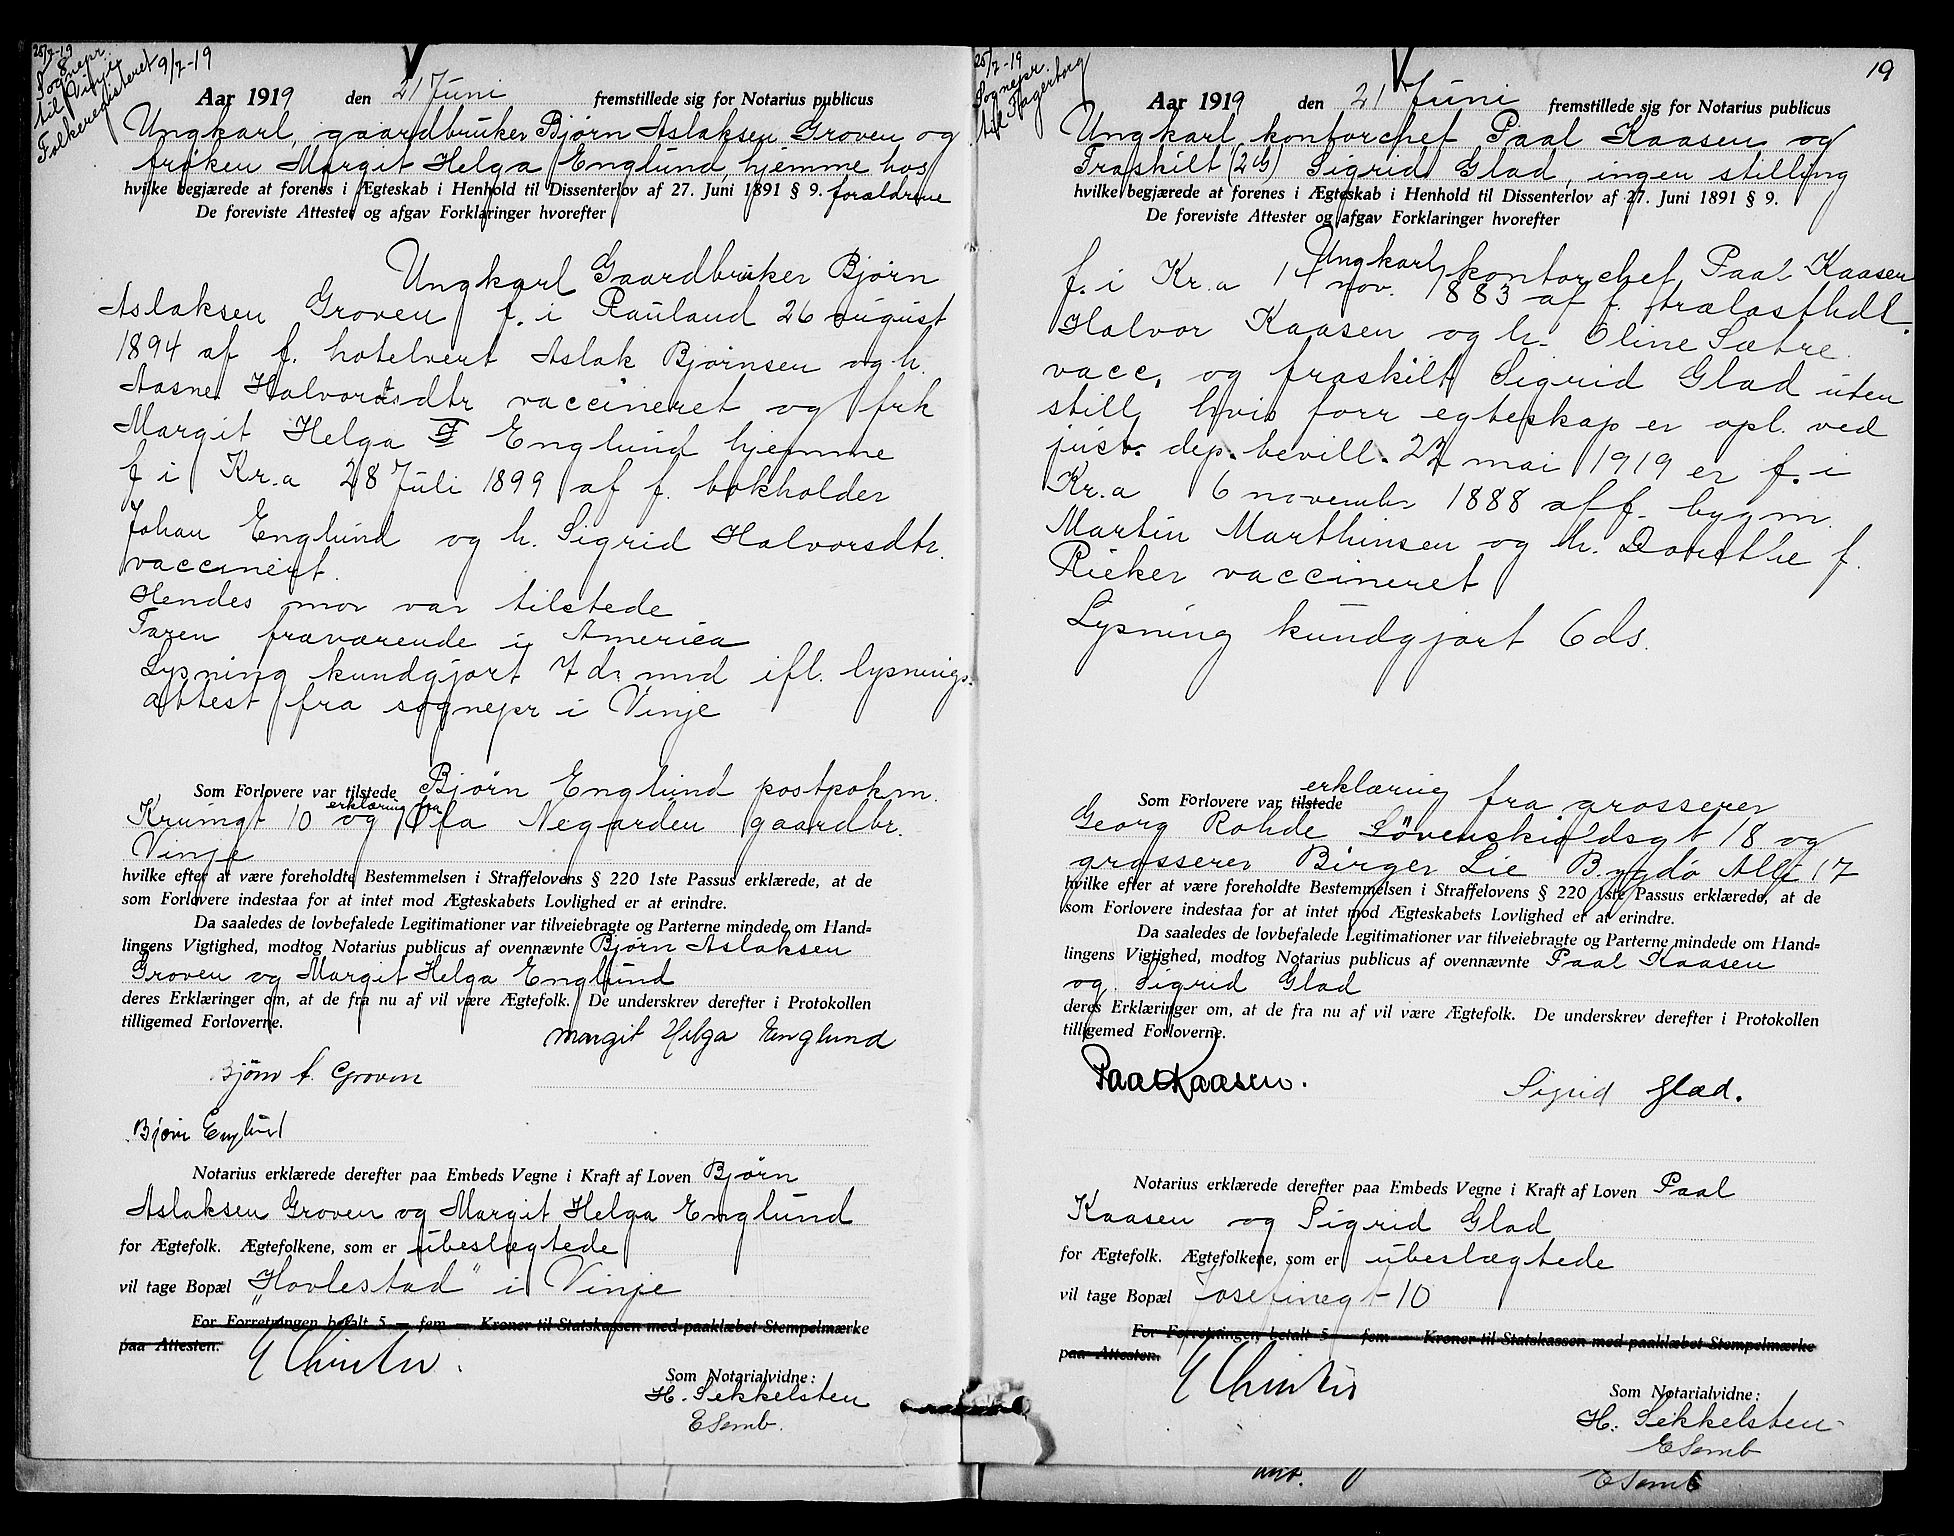 25/7-19
Sognepr.
til Vinje
Folkeregisteret 9/7-19
Aar 1919 den 21 Juni fremstillede sig for Notarius publicus
Ungkarl, gaardbruker Bjørn Aslaksen Groven og
frøken Margit Helga Englund, hjemme hos
hvilke begjærede at forenes i Ægteskab i Henhold til Dissenterlov af 27. Juni 1891 § 9. forældrene
De foreviste Attester og afgav Forklaringer hvorefter
Ungkarl Gaardbruker Bjørn
Aslaksen Groven f. i Rauland 26 august
1894 af f. hotelvert Aslak Bjørnsen og h.
Aasne Halvorsdtr vaccineret og frk
Margit Helga Englund hjemme
f i Kr.a 28 Juli 1899 af f. bokholder
Johan Englund og h. Sigrid Halvorsdtr.
vaccinert.
Hendes mor var tilstede
Faren fraværende i America
Lysning kundgjort 7 ds mnd ifl. lysnings-
attest fra sognepr i Vinje
Som Forlovere var tilstede Bjørn Englund postpokm.
Krumgt 10 og erklæring fra Ola Negarden gaardbr.
Vinje
hvilke efter at være foreholdte Bestemmelsen i Straffelovens § 220 1ste Passus erklærede, at de
som Forlovere indestaa for at intet mod Ægteskabets Lovlighed er at erindre.
Da saaledes de lovbefalede Legitimationer var tilveiebragte og Parterne mindede om Hand=
lingens Vigtighed, modtog Notarius publicus af ovennævnte Bjørn Aslaksen
Groven og Margit Helga Englund
deres Erklæringer om, at de fra nu af vil være Ægtefolk. De underskrev derefter i Protokollen
tilligemed Forloverne.
Margit Helga Englund
Bjørn A. Groven
Bjørn Englund
Notarius erklærede derefter paa Embeds Vegne i Kraft af Loven Bjørn
Aslaksen Groven og Margit Helga Englund
for Ægtefolk. Ægtefolkene, som er ubeslægtede
vil tage Bopæl "Hovlestad" i Vinje
For Forretningen betalt 5 — fem — Kroner til Statskassen med paaklæbet Stempelmærke
paa Attesten.
Som Notarialvidne:
H. Sekkelsten
E Semb.
19
25/7-19
Sognepr.
til Fagerborg
Aar 1919 den 21 Juni fremstillede sig for Notarius publicus
Ungkarl kontorchef Paal Kaasen og
Fraskilt (2 G) Sigrid Glad, ingen stilling
hvilke begjærede at forenes i Ægteskab i Henhold til Dissenterlov af 27. Juni 1891 § 9.
De foreviste Attester og afgav Forklaringer hvorefter
Ungkarl kontorchef Paal Kaasen
f. i Kr.a 14 nov. 1883 af f. trælasthdl.
Halvor Kaasen og h. Oline Sætre
vacc. og fraskilt Sigrid Glad uten
still hvis forr egteskap er opl. ved
just. dep. bevill. 22 mai 1919 er f. i
Kr.a 6 novembr 1888 af f. bygm.
Martin Marthinsen og h. Dorothe f.
Rieker vaccineret
Lysning kundgjort 6 ds.
Som Forlovere var tilstede erklæring fra grosserer
Georg Rohde Løvenskioldsgt 18 og
grosserer Birger Lie Bygdø Allé 17
hvilke efter at være foreholdte Bestemmelsen i Straffelovens § 220 1ste Passus erklærede, at de
som Forlovere indestaa for at intet mod Ægteskabets Lovlighed er at erindre.
Da saaledes de lovbefalede Legitimationer var tilveiebragte og Parterne mindede om Hand=
lingens Vigtighed, modtog Notarius publicus af ovennævnte Paal Kaasen
og Sigrid Glad
deres Erklæringer om, at de fra nu af vil være Ægtefolk. De underskrev derefter i Protokollen
tilligemed Forloverne.
Paal Kaasen.
Sigrid Glad.
Notarius erklærede derefter paa Embeds Vegne i Kraft af Loven Paal
Kaasen og Sigrid Glad
for Ægtefolk. Ægtefolkene, som er ubeslægtede
vil tage Bopæl Josefinegt 10
For Forretningen betalt 5 — fem — Kroner til Statskassen med paaklæbet Stempelmærke
paa Attesten.
Som Notarialvidne:
H. Sekkelsten
E Semb
E Semb